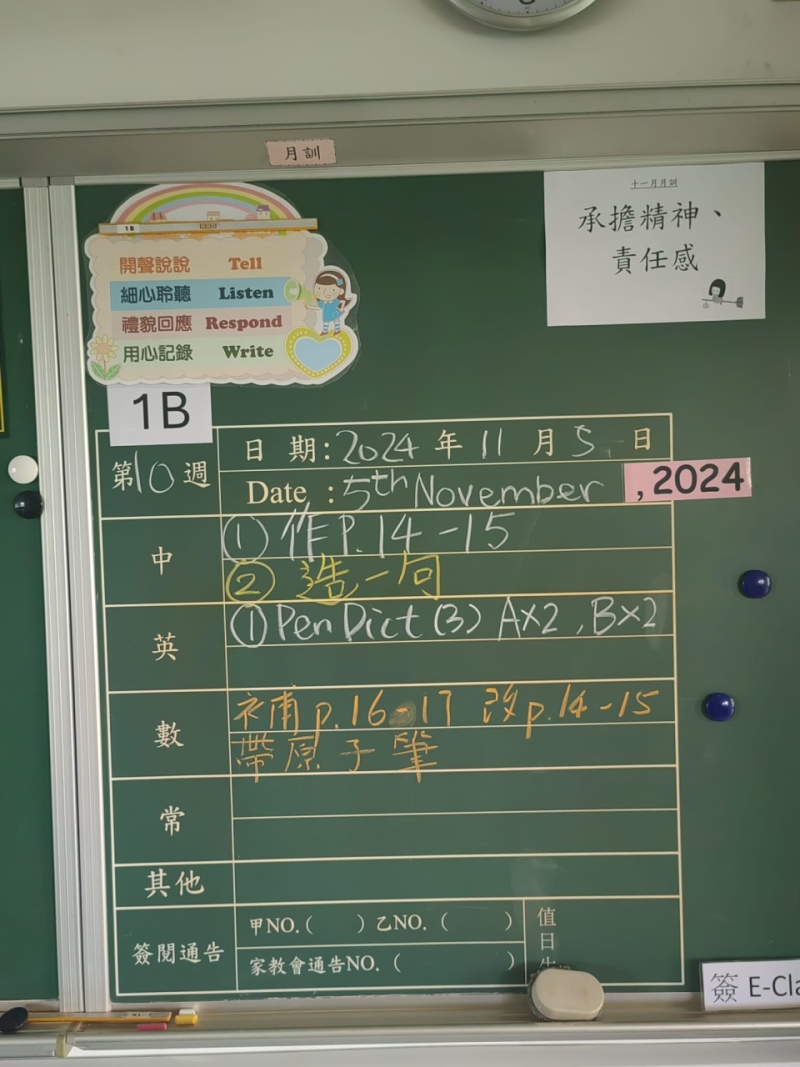 月訓
十一月月訓
承擔精神、
責任感
1B
開聲說說 Tell
細心聆聽 Listen
禮貌回應 Respond
用心記錄 Write
1B
第10週
日 期：2024 年 11 月 5 日
Date ：5th November , 2024
中
① 作P.14-15
② 造一句
英
① Pen Dict (3) A×2 , B×2
數
補p.16-17 改p.14-15
帶原子筆
常
其他
簽閱通告
甲NO.( ) 乙NO. ( )
家教會通告NO. ( )
值日
簽 E-Cla